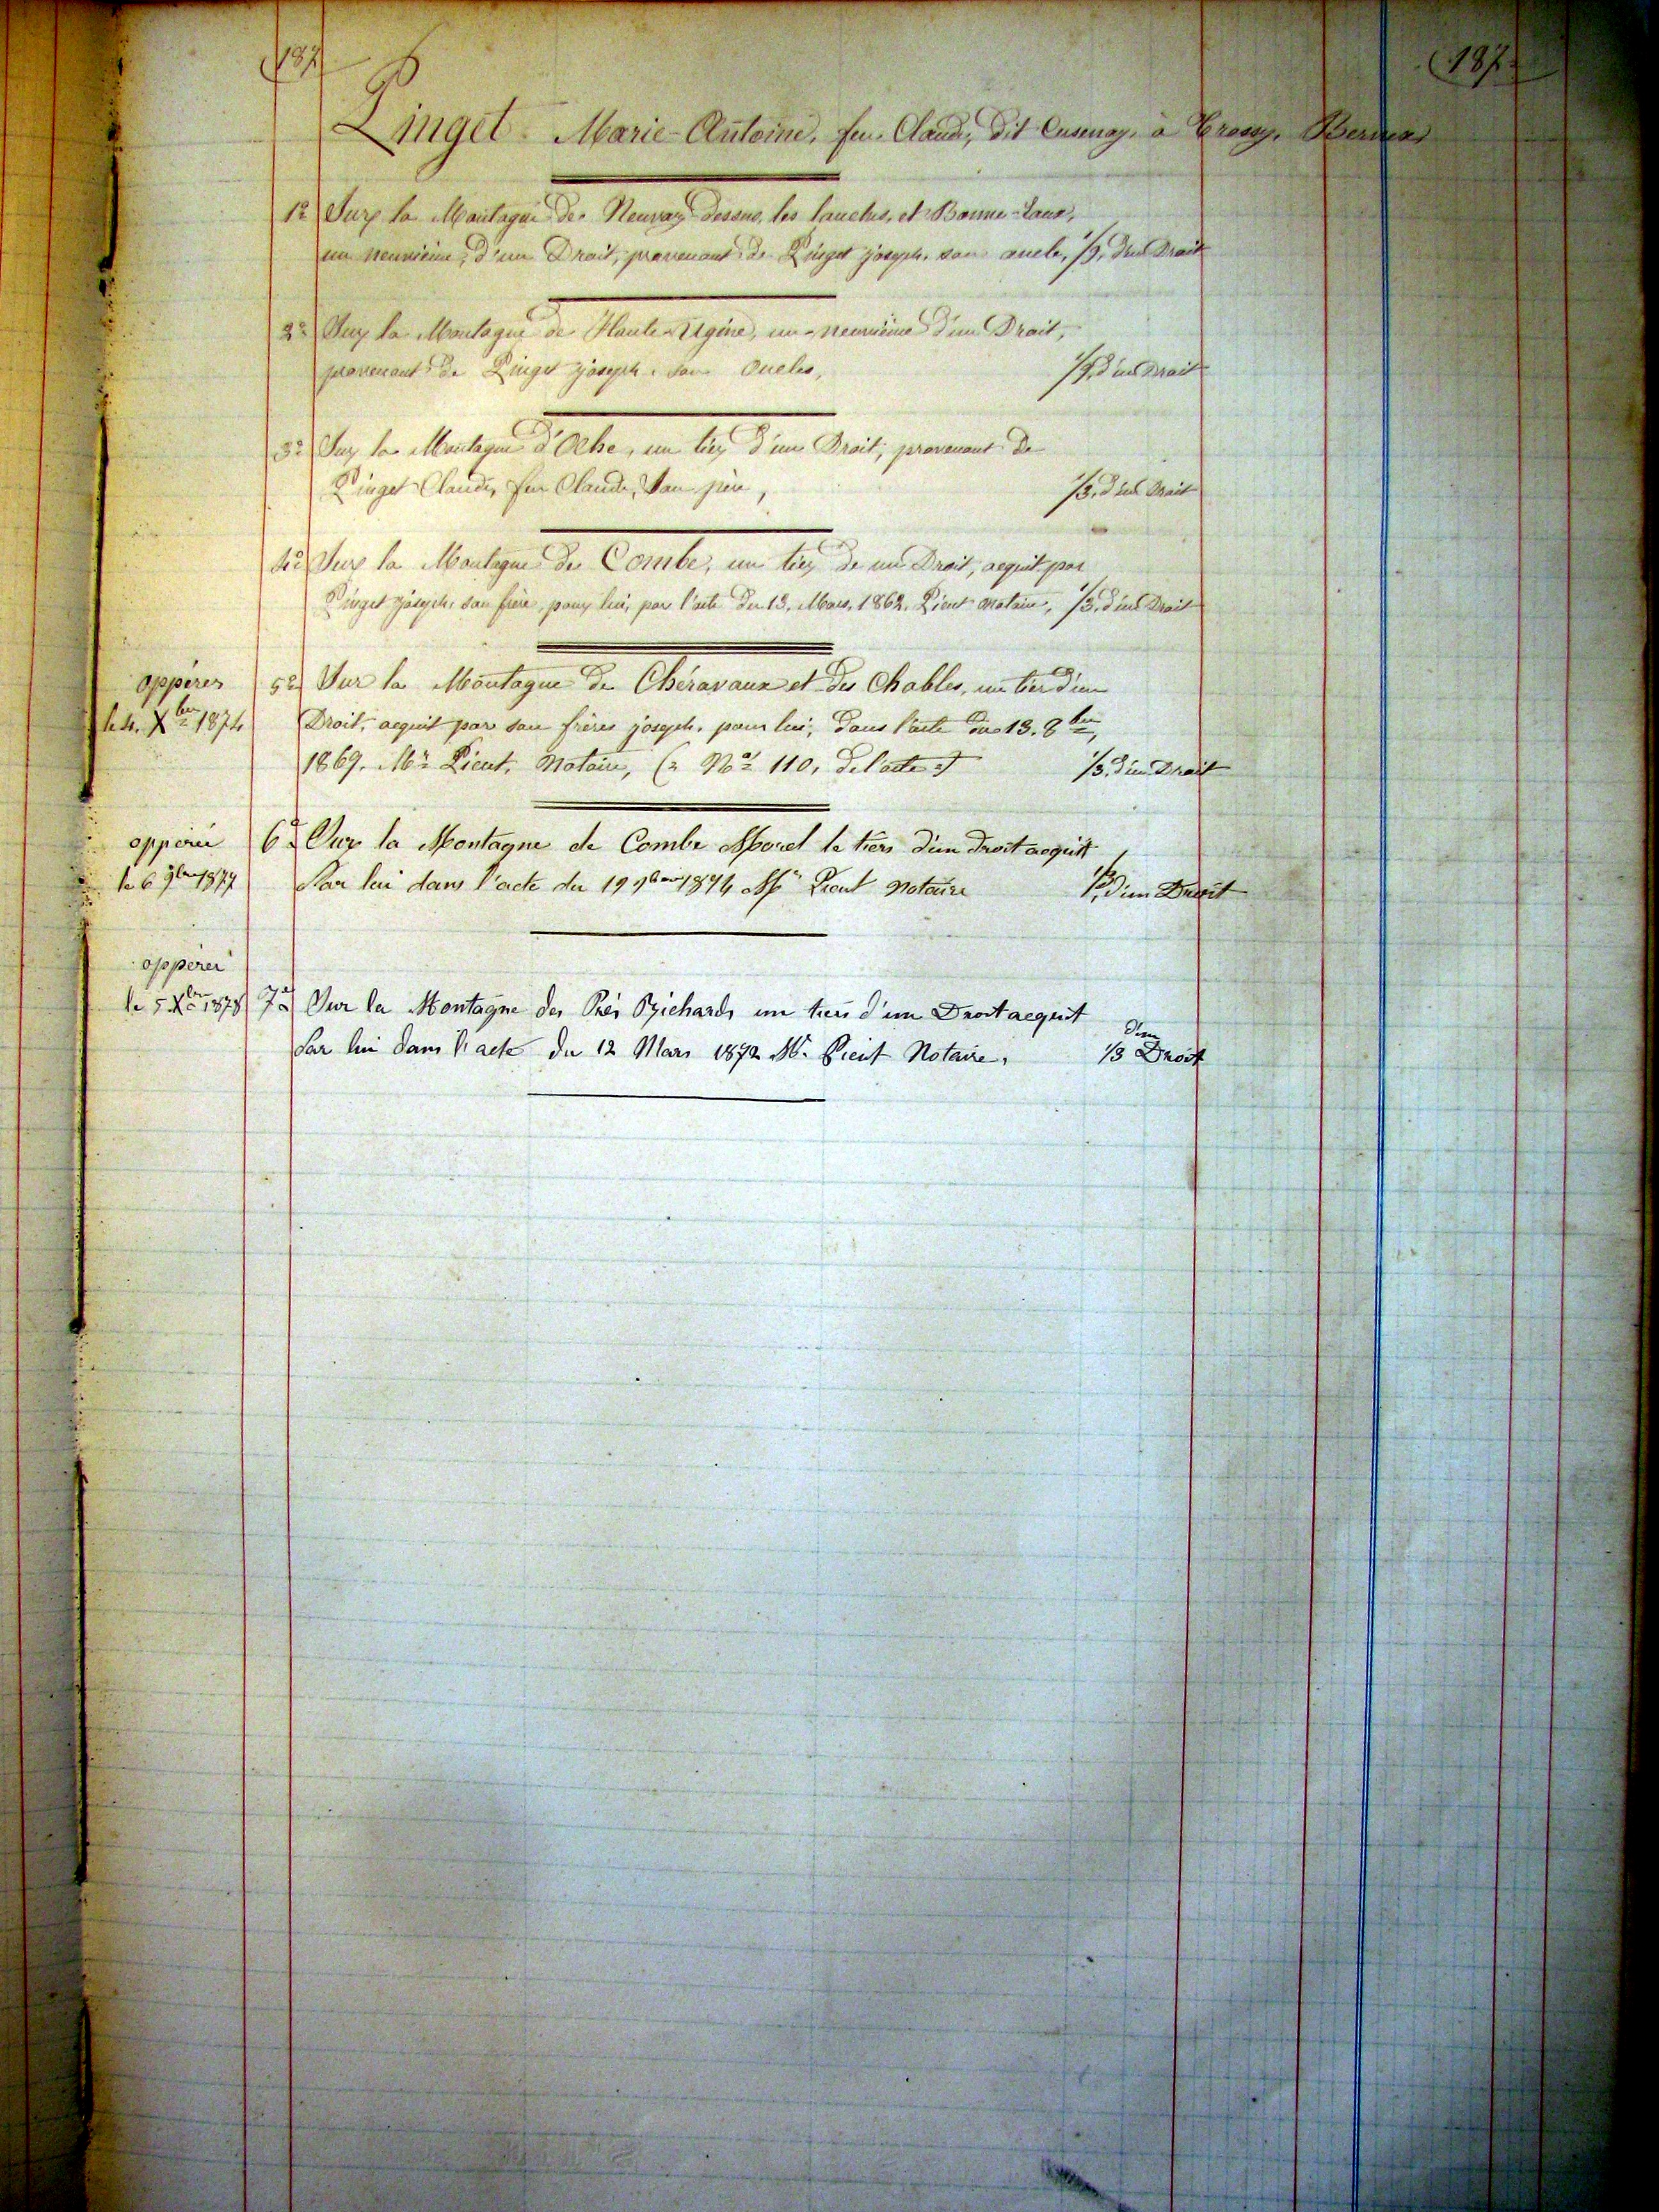 187
187
Pinget Marie-Antoine, feu Claude, dit Cusenay, à Trossy, Bernex
1º Sur la Montagne de Neuvaz dessus, les lanches, et Bonne-Eaux,
un neuvième, d'un Droit, provenant de Pinget joseph, son oncle, 1/9, d'un Droit
2º Sur la Montagne de Haute-Ugine, un neuvième d'un Droit,
provenant de Pinget joseph, son Oncles, 1/9, d'un Droit
3º Sur la Montagne d'Oche, un tiers d'un Droit, provenant de
Pinget Claude, feu Claude, Son père, 1/3, d'un Droit
4º Sur la Montagne de Combe, un tiers de un Droit, acquit par
Pinget joseph, son frère, pour lui, par l'acte du 13, Mars, 1862. Pieut notaire, 1/3, d'un Droit
oppérer 5º Sur la Montagne de Chéravaux et des Chables, un tier d'un
le 4, Xbre 1874 Droit, acquit par son frères joseph, pour lui, dans l'acte du 13. 8bre,
1869. Mre Pieut, Notaire, (= Nº 110, de l'acte =) 1/3, d'un Droit
opperéi 6º Sur la Montagne de Combe Morel le tiers d'un droit acquit
le 6 9bre 1877 Par lui dans l'acte du 19 9bre 1874 Me Pieut notaire 1/3, d'un Droit
opperéi
le 5 Xbre 1878 7º Sur la Montagne des Prés Richards un tiers d'un Droit acquit
Par lui dans l'acte du 12 Mars 1872 Me. Pieut Notaire, 1/3 d'un Droit